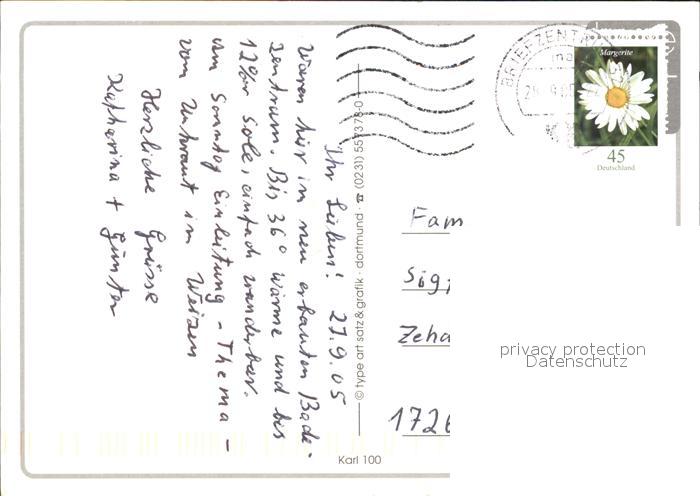 Ihr Lieben! 27.9.05
Waren hier im neu erbauten Bade-
zentrum. Bis 36° Wärme und bis
12%ige Sole, einfach wunderbar.
Am Sonntag Einleitung - Thema -
vom Unkraut im Weizen
Herzliche Grüsse
Katharina + Günter
© type art satz & grafik · dortmund · ☎ (0231) 557373-0
Karl 100
BRIEFZENTRUM
Margerite
45
Deutschland
Fam
Sig
Zeha
1726
privacy protection
Datenschutz